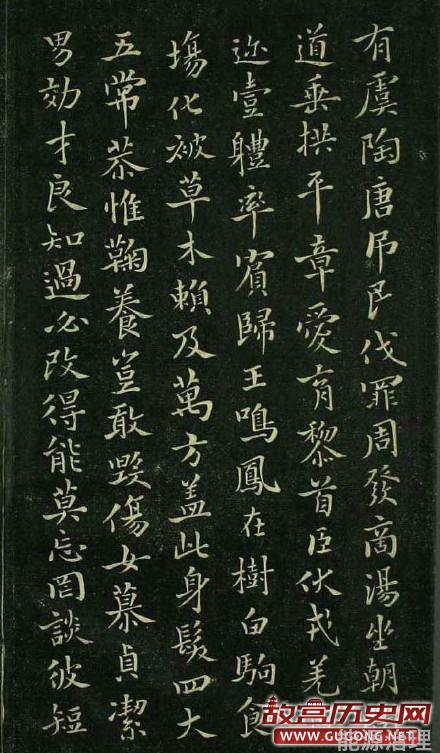 有虞陶唐吊民伐罪周發商湯坐朝
道垂拱平章愛育黎首臣伏戎羌
迩壹軆率賓歸王鳴鳳在樹白駒食
塲化被草木賴及萬方盖此身髮四大
五常恭惟鞠養豈敢毀傷女慕貞潔
男効才良知過必改得能莫忘罔談彼短
故宫历史网
WWW.GUGONG.NET